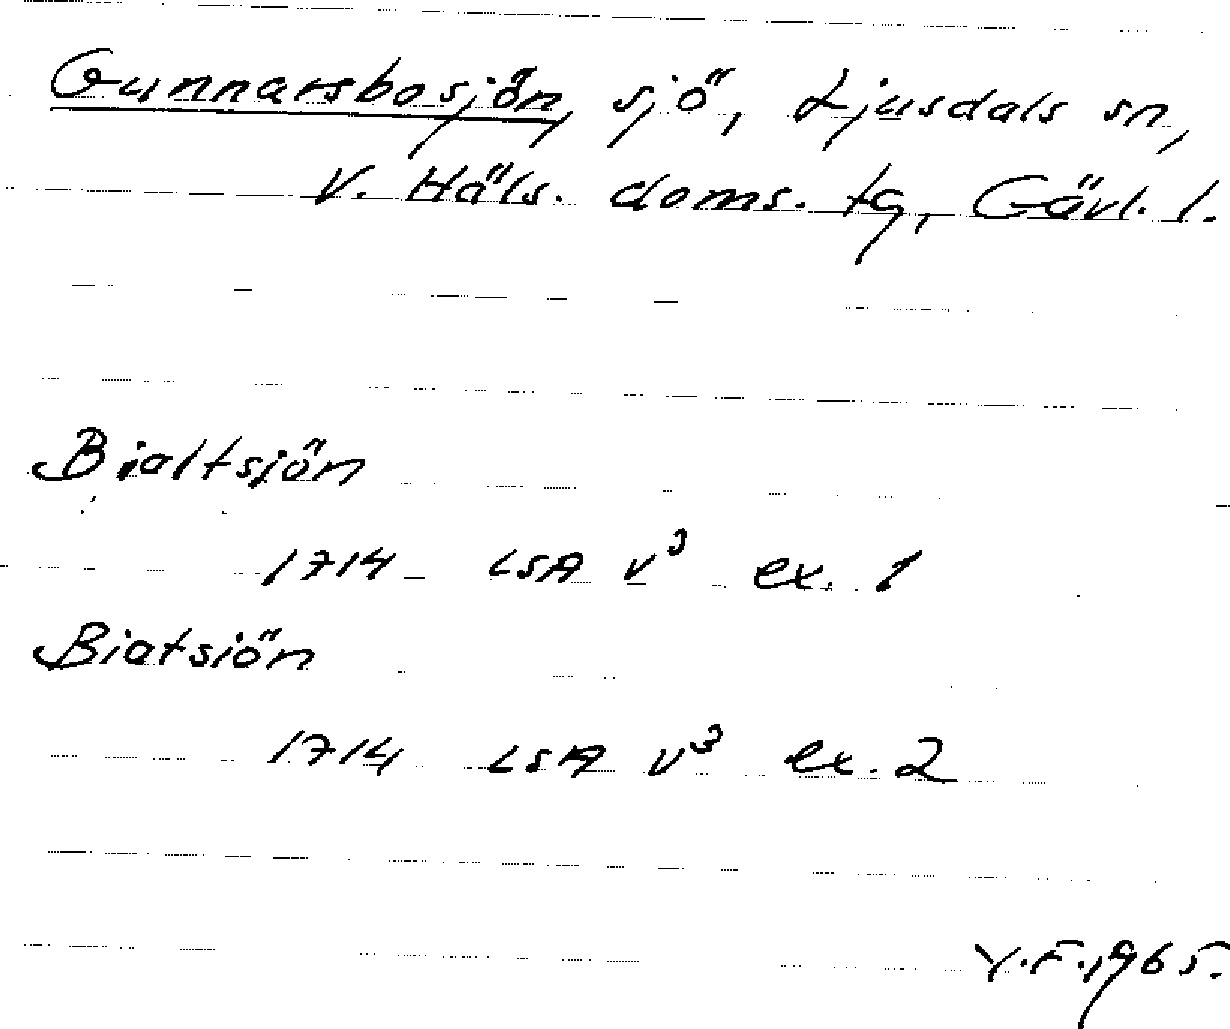 Gunnarsbosjön, sjö, Ljusdals sn,
V. Häls. doms. tg, Gävl. l.
Bialtsjön
1714 LSA v³ ex. 1
Biatsiön
1714 LSA v³ ex. 2
Y.F. 1965.